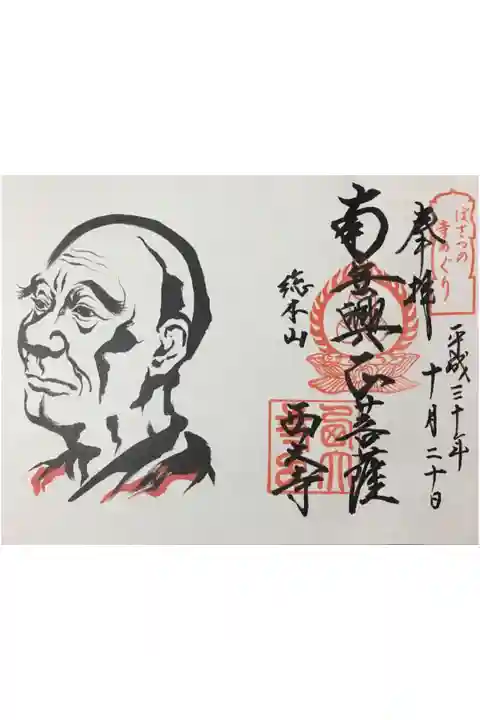 ぼさつの
寺めぐり
奉拝
平成三十年
十月二十日
南無興正菩薩
総本山
西大寺